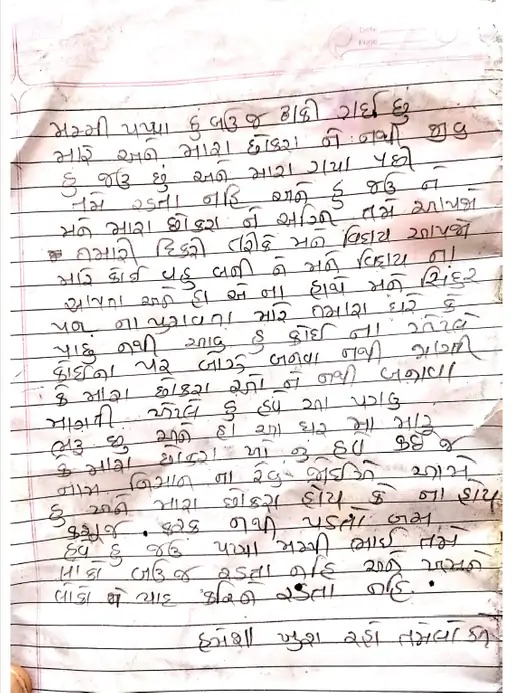 મમ્મી પપ્પા હું બઉ જ થાકી ગઈ છું
મારે અને મારા છોકરા ને નથી જીવુ
હું જઉ છું અને મારા ગયા પછી
તમે રડતા નહિ અને હું જઉ ને
મને મારા છોકરા ને અગ્નિ તમે આપજો
તમારી દિકરી તરીકે મને વિદાય આપજો
મારે કોઈ વહુ બની ને મને વિદાય ના
આપતા અને હા એ ના હાથે મને સિંદુર
પણ ના પુરાવતા મારે તમારા ઘરે કે
પાછુ નથી આવુ હુ કોઈ ના
કોઈના પર બોજ બનવા નથી માગતી
કે મારા છોકરા ને નથી બનાવા
માગતી એટલે હું હવે આ પગલુ
ભરુ છુ અને હા આ ઘર મા મારૂ
કે મારા છોકરા નુ હવે કઈ જ
નામ નિશાન ના રેવુ જોઈએ આમે
હુ અને મારા છોકરા હોય કે ના હોય
ફરક નથી પડતો બસ
હવે હું જઉ પપ્પા મમ્મી ભાઈ તમે
લોકો બઉ જ રડતા નહિ અને અમને
લોકો ને યાદ કરિને રડતા નહિ.
હમેશા ખુશ રહો તમે લોકો